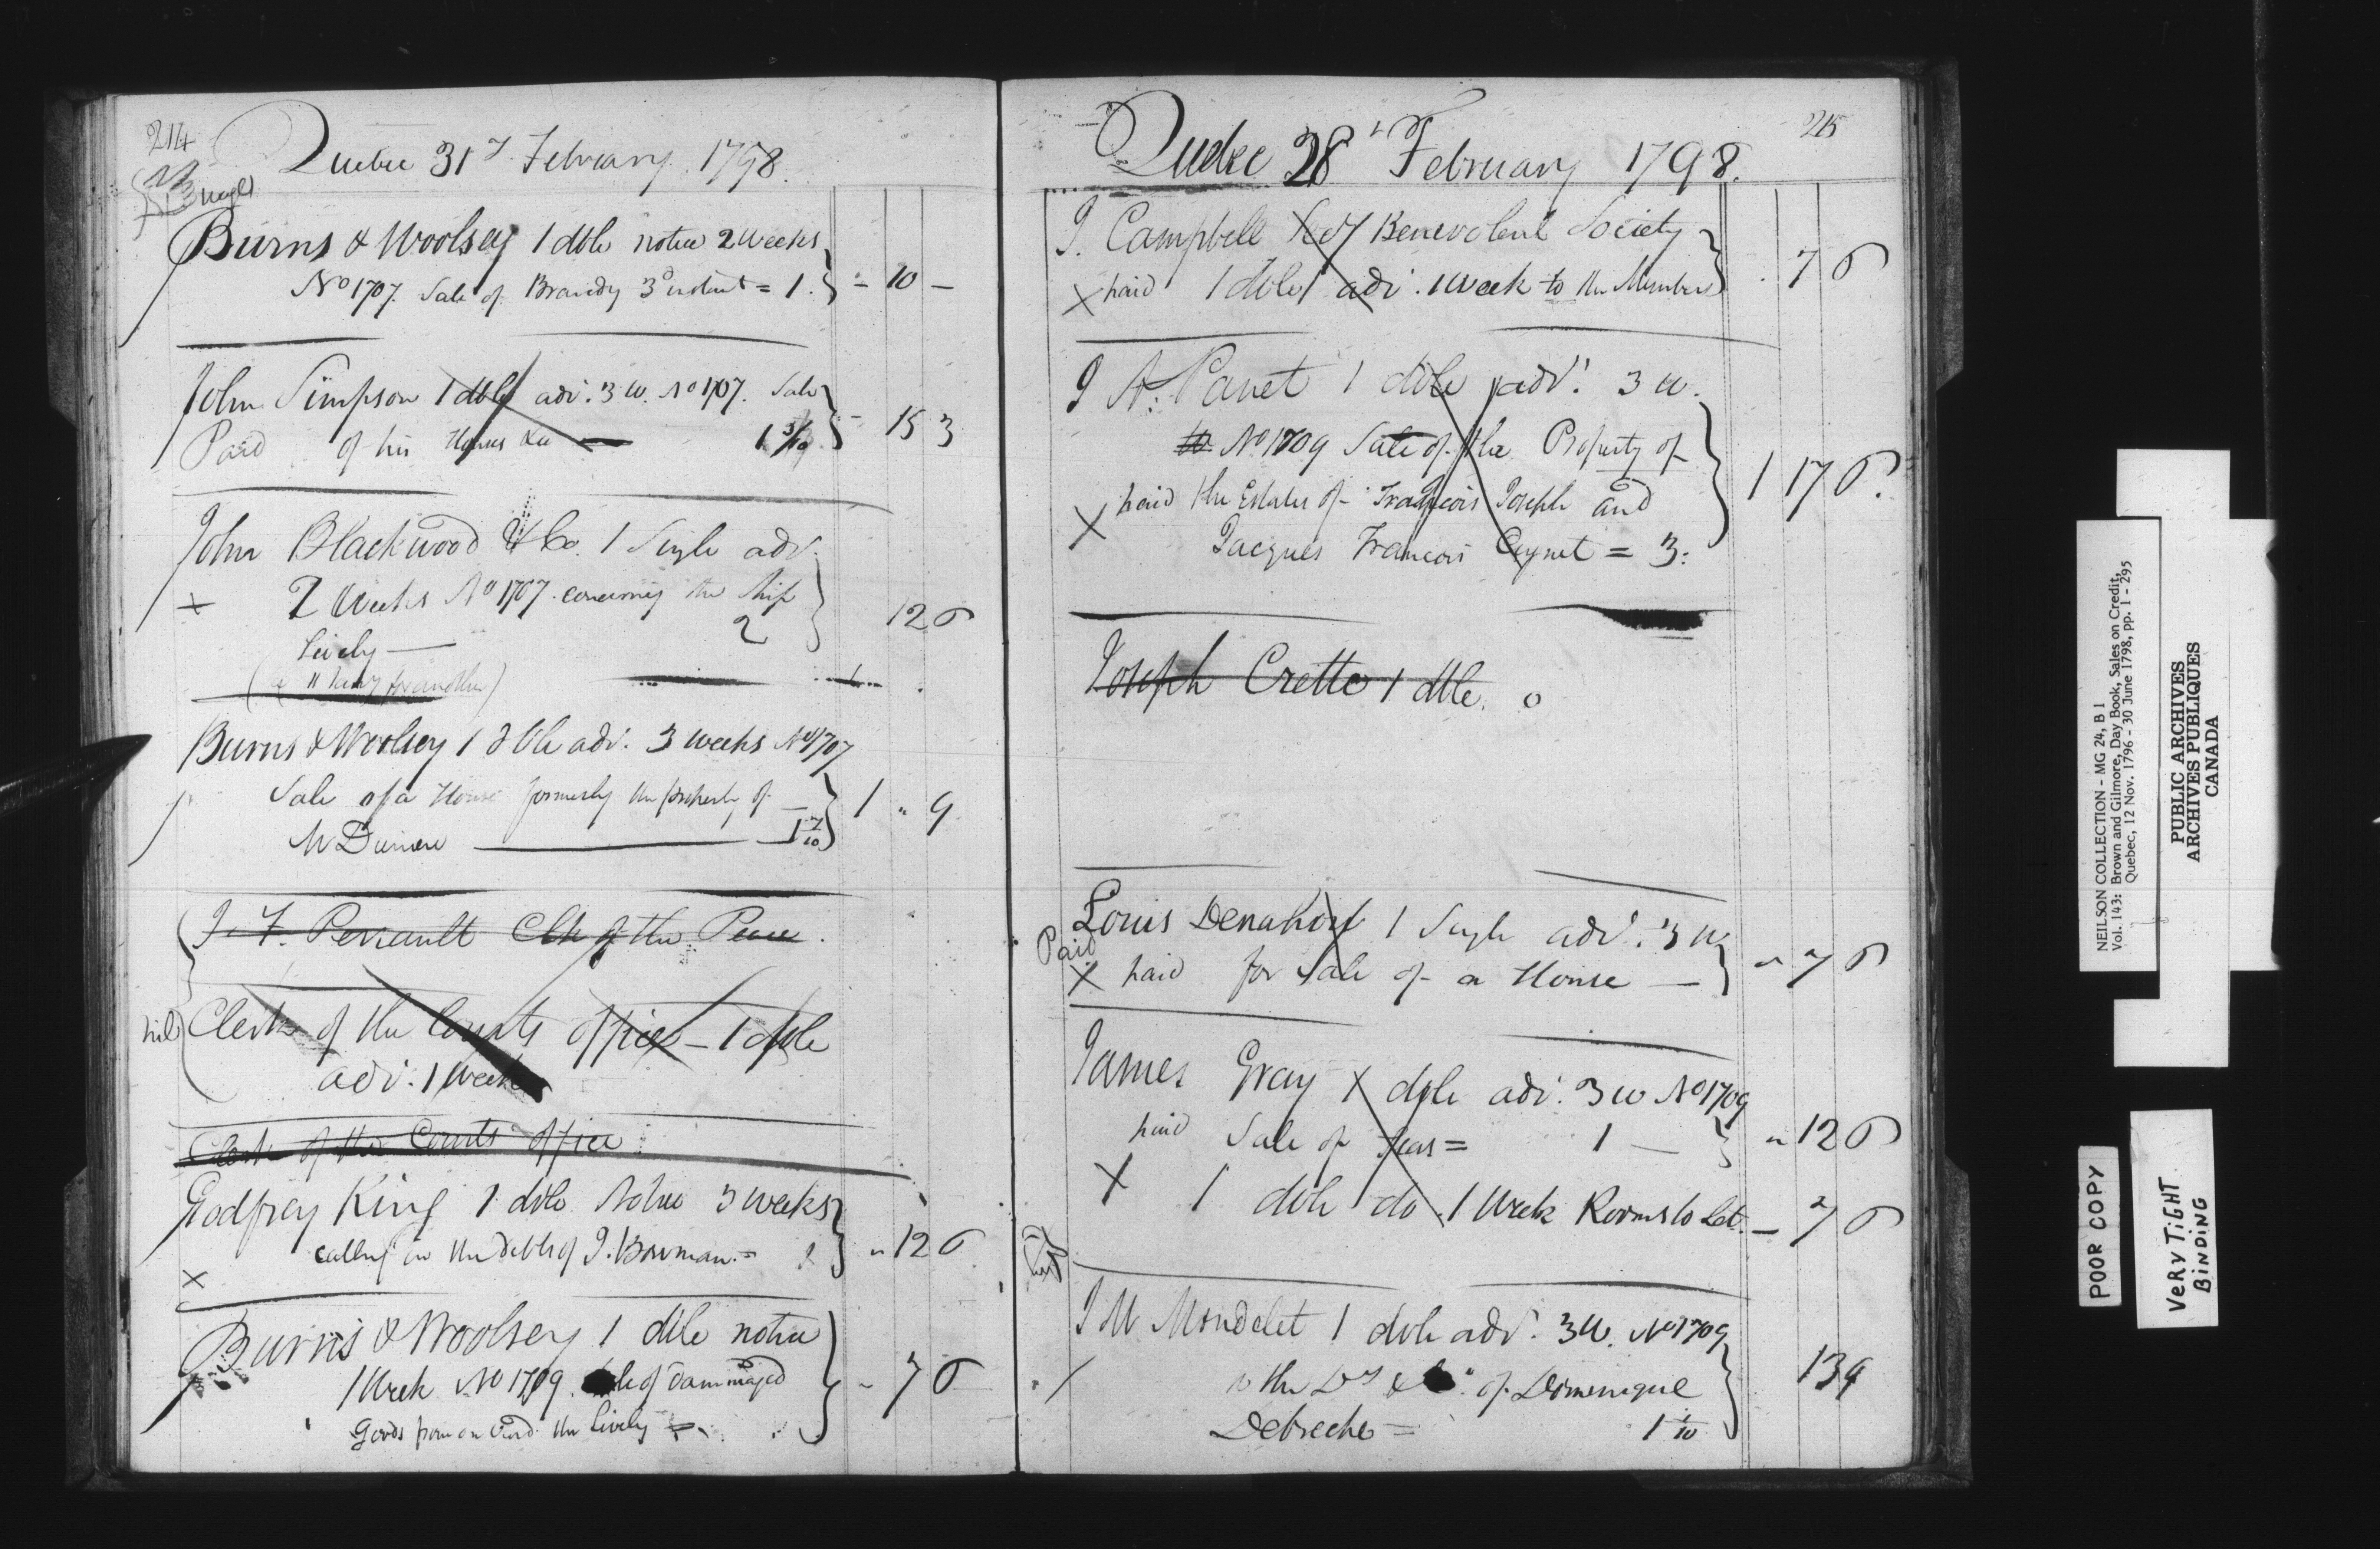 214
Quebec 31st February 1798.
Burns & Woolsey 1 dble notice 2 Weeks
No 1707. Sale of Brandy 3d instant = 1. - 10 -
John Simpson 1 dble adv. 3 W. No 1707. Sale
Paid of his House &ca 1 3/10 - 15 3
John Blackwood & Co. 1 Single adv.
x 2 Weeks No 1707. concerning the Ship
2 12 6
Lively —
Burns & Woolsey 1 dble adv. 3 weeks No 1707
Sale of a House formerly the property of
1 " 9
Mr Duniere — 1 7/10
J. F. Perrault Clk of the Peace.
Clerk of the Courts office — 1 dble
adv. 1 Week
Clerk of the Courts office
Godfrey King 1 dble Notice 3 weeks
calling in the debts of J. Bowman = " 12 6
x
Burns & Woolsey 1 dble notice
1 Week No 1709. Sale of dammaged - 7 6
Goods from on board the Lively
215
Quebec 28th February 1798.
J. Campbell Secy Benevolent Society
x paid 1 dble adv. 1 Week to the Members 7 6
J A. Panet 1 dble adv. 3 W.
No 1709 Sale of the Property of
1 17 6.
x paid the Estates of François Joseph and
Jacques Francois Cugnet = 3.
Joseph Crette 1 dble. o
Louis 1 Single adv. 3 W
Paid
x paid for Sale of a House — " 7 6
James Gray 1 dble adv. 3 W No 1709
paid Sale of = 1 — " 12 6
x 1 dble do 1 Week Rooms to Let. — 7 6
J M Mondelet 1 dble adv. 3 W. No 1709
to the Drs & Crs of Dominique 13 9
Debreche = 1 1/10
NEILSON COLLECTION - MG 24, B 1
Vol. 143: Brown and Gilmore, Day Book, Sales on Credit,
Quebec, 12 Nov. 1796 - 30 June 1798, pp. 1 - 295
PUBLIC ARCHIVES
ARCHIVES PUBLIQUES
CANADA
POOR COPY
VERY TIGHT
BINDING